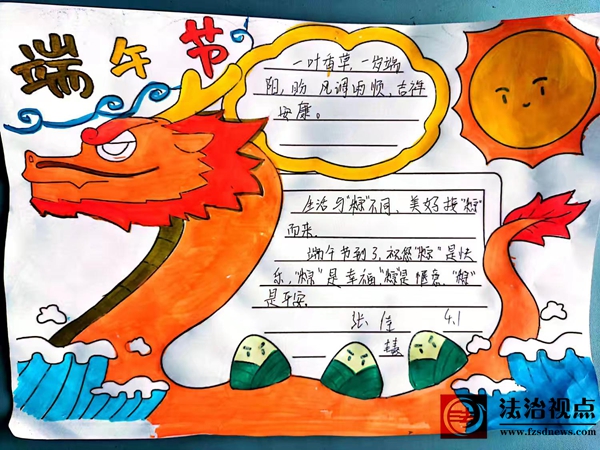 端午节
一叶香草,一岁端
阳,盼风调雨顺、吉祥
安康。
生活与"粽"不同、美好接"粽"
而来.
端午节到了,祝您"粽"是快
乐,"粽"是幸福,"粽"是惬意,"粽"
是平安.
张佳 4.1
法治视点
www.fzsdnews.com